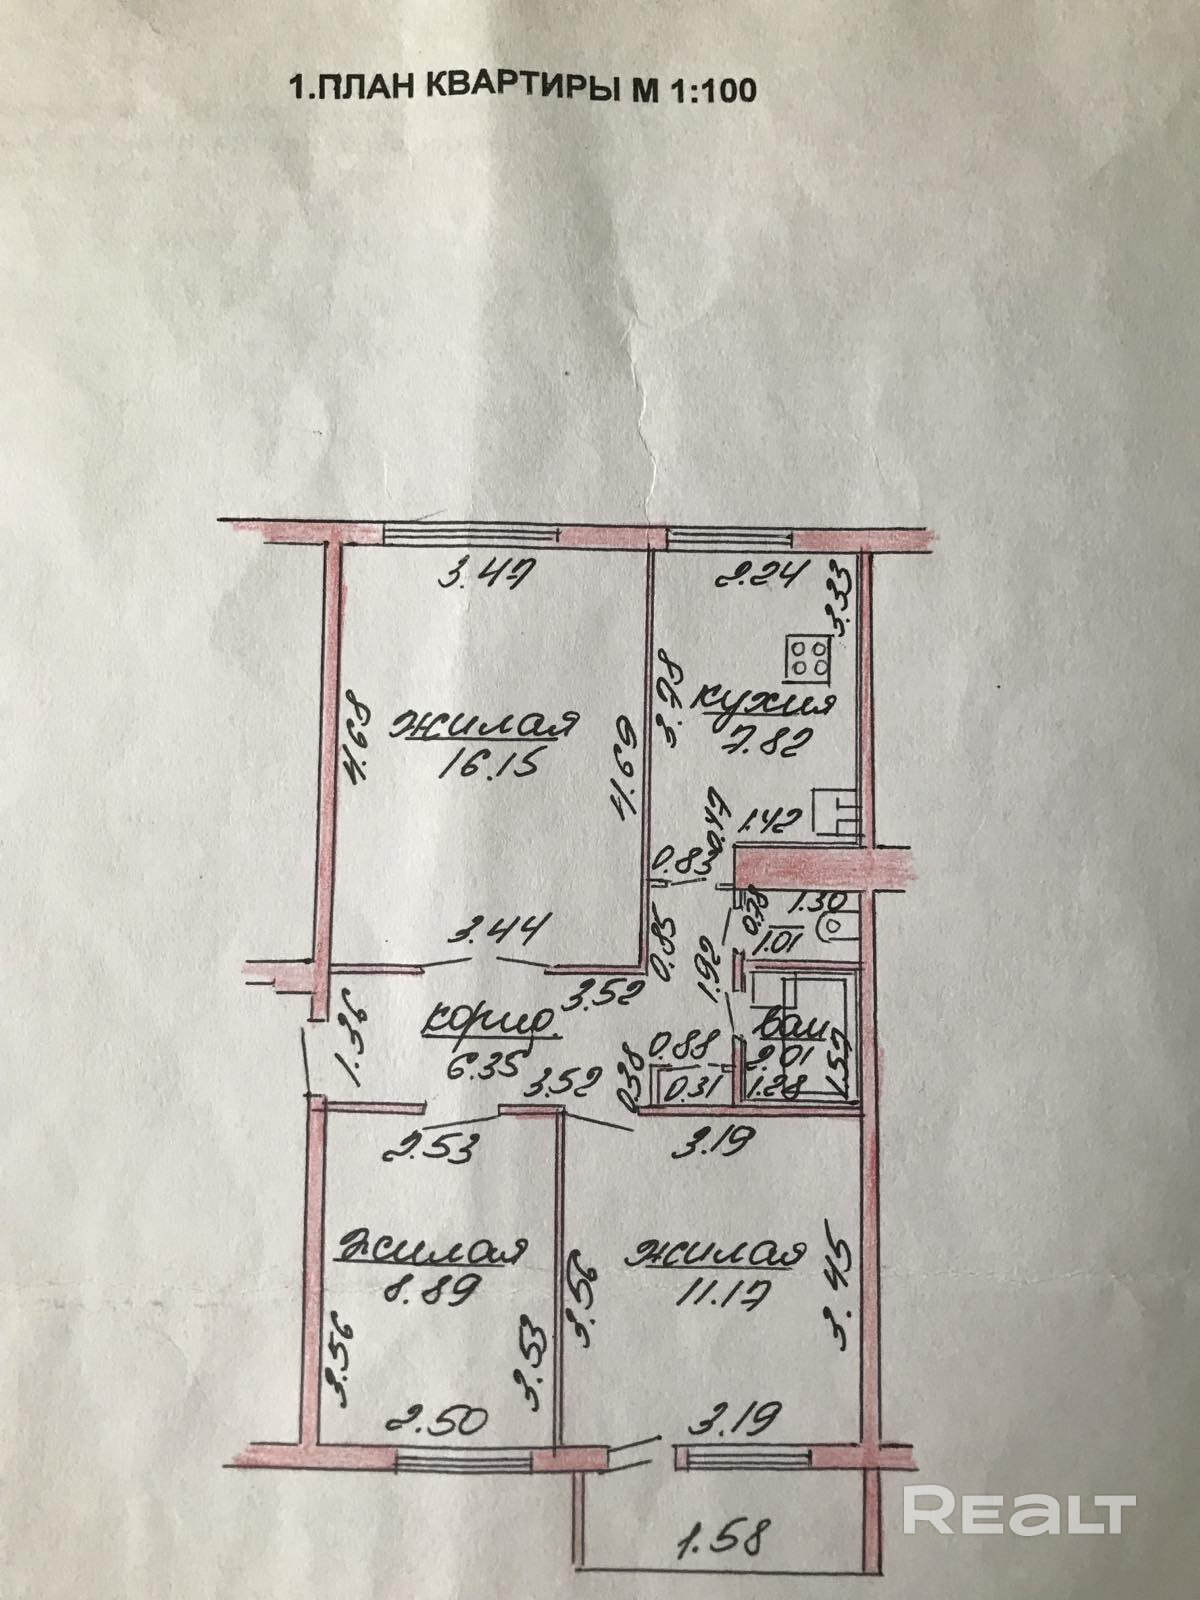 1.ПЛАН КВАРТИРЫ М 1:100
3.47
2.24
3.33
4.68
жилая
16.15
4.69
3.78
кухня
7.82
0.47
1.42
0.83
3.44
0.85
1.92
0.78
1.30
1.01
1.36
коридо.
6.35
3.52
3.52
0.38
0.88
0.31
ван
2.01
1.28
1.57
2.53
3.19
жилая
8.89
3.56
3.53
2.50
3.56
жилая
11.17
3.45
3.19
1.58
REALT